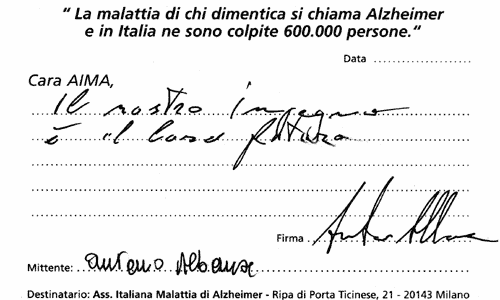 “ La malattia di chi dimentica si chiama Alzheimer
e in Italia ne sono colpite 600.000 persone.“
Data ..............
Cara AIMA,
Il nostro impegno
è il loro futuro
Firma
Mittente: Antonio Albanese
Destinatario: Ass. Italiana Malattia di Alzheimer - Ripa di Porta Ticinese, 21 - 20143 Milano